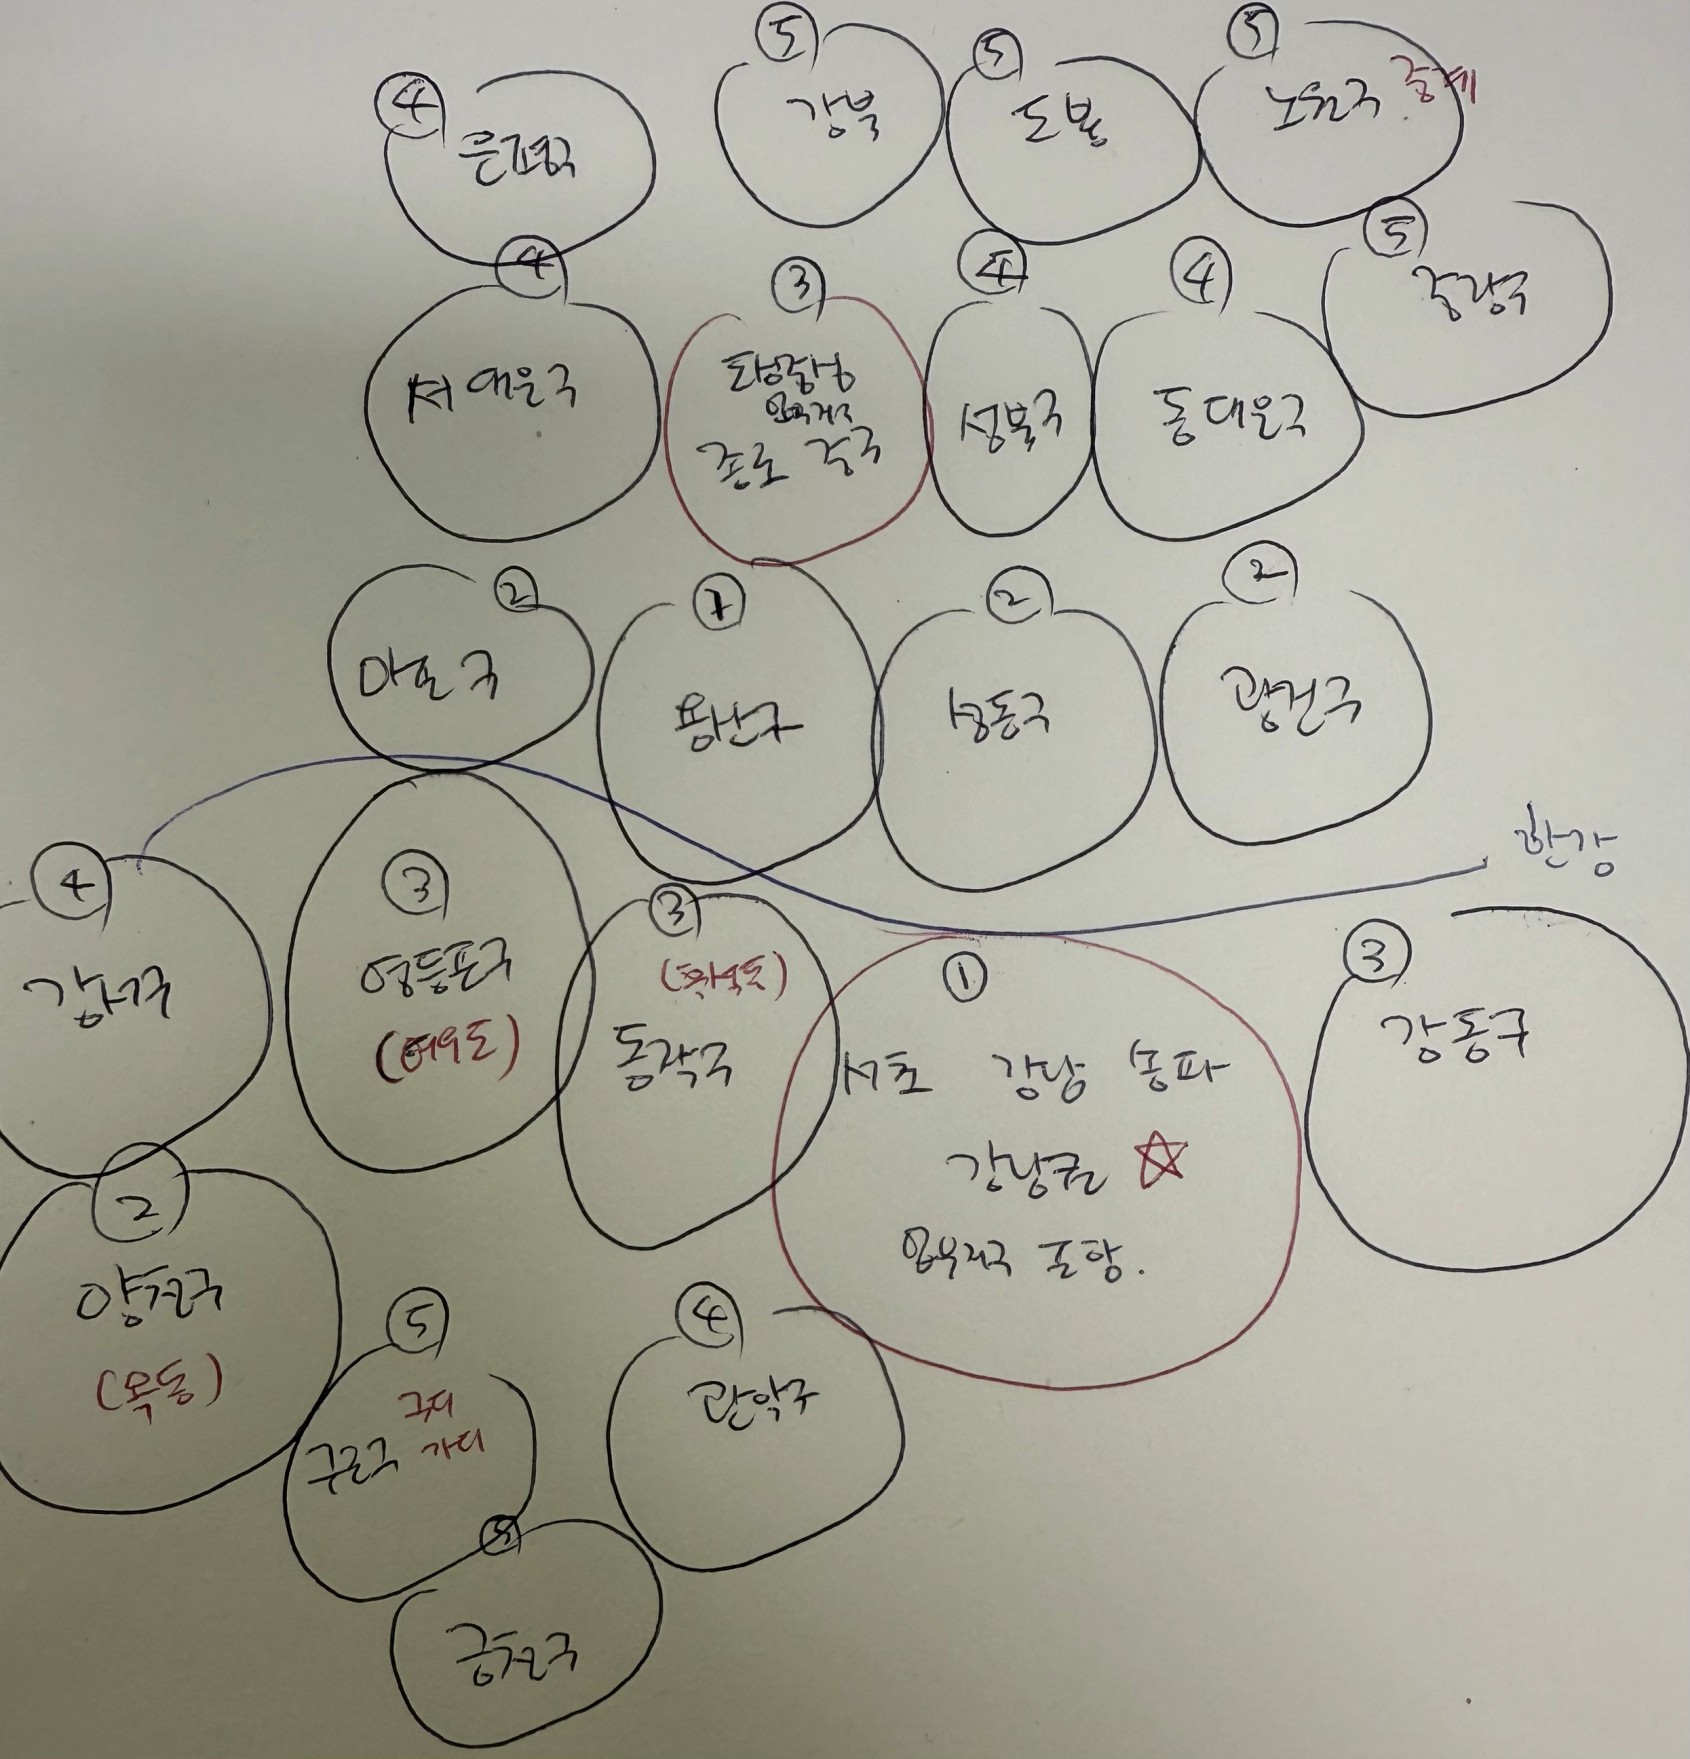 ⑤
강북
⑤
도봉
⑤
노원구 중계
④
은평구
⑤
중랑구
④
서대문구
③
업무지구
종로 중구
④
성북구
④
동대문구
②
마포구
①
용산구
②
성동구
②
광진구
한강
④
강서구
③
영등포구
(여의도)
③
(흑석동)
동작구
①
서초 강남 송파
강남권 ☆
업무지구 포함.
③
강동구
②
양천구
(목동)
⑤
구디
구로구 가디
④
관악구
⑤
금천구